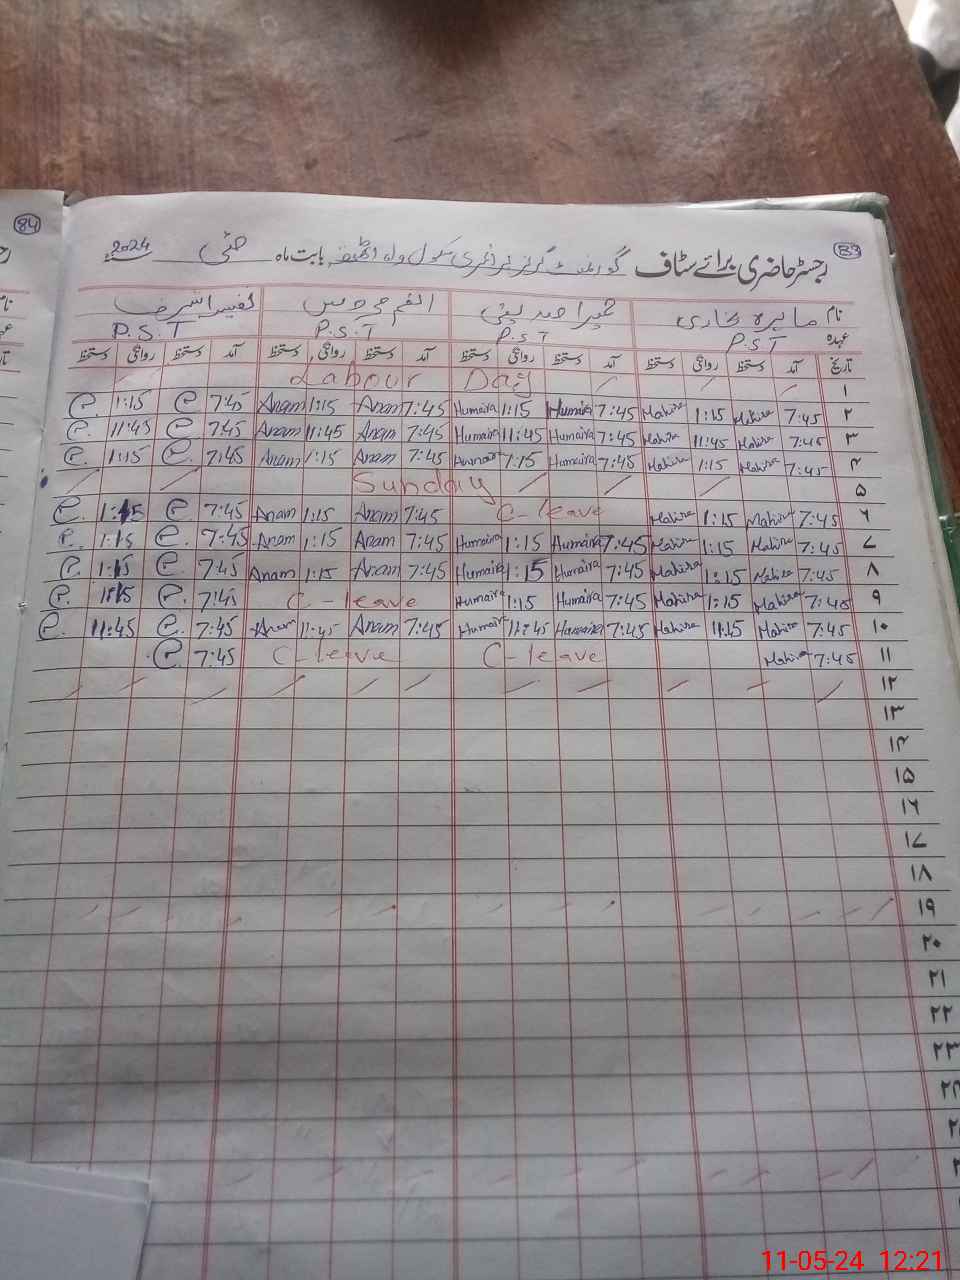 84
83
رجسٹر حاضری برائے سٹاف گورنمنٹ گرلز پرائمری سکول بابت ماہ مئی 2024
نام ماہرہ بخاری حمیرا صدیق انعم فردوس نفیسہ اشرف
عہدہ P.S.T P.S.T P.S.T P.S.T
تاریخ آمد دستخط روانگی دستخط آمد دستخط روانگی دستخط آمد دستخط روانگی دستخط آمد دستخط روانگی دستخط
۱ Labour Day
۲ 7:45 Mahira 1:15 Mahira 7:45 Humaira 1:15 Humaira 7:45 Anam 1:15 Anam 7:45 1:15
۳ 7:45 Mahira 11:45 Mahira 7:45 Humaira 11:45 Humaira 7:45 Anam 11:45 Anam 7:45 11:45
۴ 7:45 Mahira 1:15 Mahira 7:45 Humaira 1:15 Humaira 7:45 Anam 1:15 Anam 7:45 1:15
۵ Sunday
۶ 7:45 Mahira 1:15 Mahira C-leave 7:45 Anam 1:15 Anam 7:45 1:15
۷ 7:45 Mahira 1:15 Mahira 7:45 Humaira 1:15 Humaira 7:45 Anam 1:15 Anam 7:45 1:15
۸ 7:45 Mahira 1:15 Mahira 7:45 Humaira 1:15 Humaira 7:45 Anam 1:15 Anam 7:45 1:15
۹ 7:45 Mahira 1:15 Mahira 7:45 Humaira 1:15 Humaira C-leave 7:45 1:15
۱۰ 7:45 Mahira 11:45 Mahira 7:45 Humaira 11:45 Humaira 7:45 Anam 11:45 Anam 7:45 11:45
۱۱ 7:45 Mahira C-leave C-leave 7:45
۱۲
۱۳
۱۴
۱۵
۱۶
۱۷
۱۸
۱۹
۲۰
۲۱
۲۲
۲۳
11-05-24 12:21